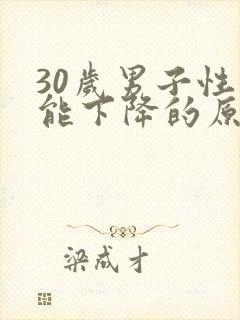 30歲男子性
能下降的原
梁成才